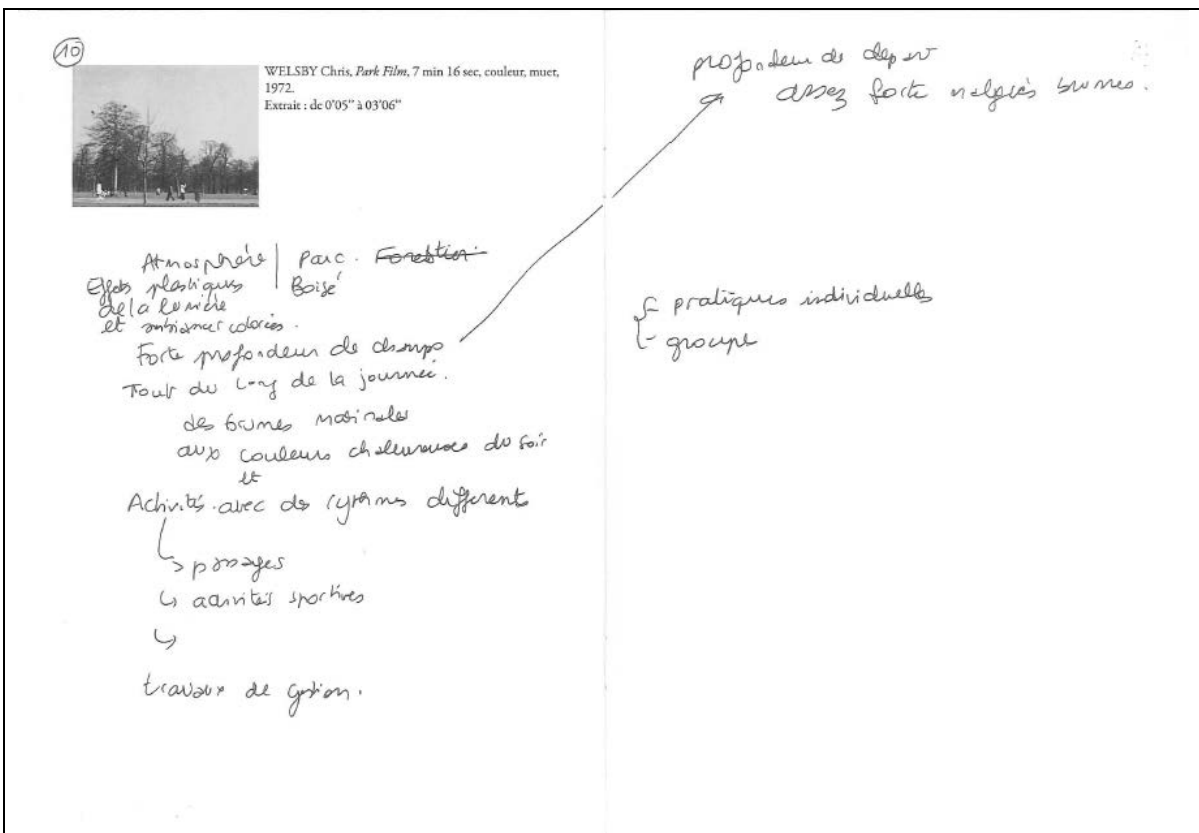 10
WELSBY Chris, Park Film, 7 min 16 sec, couleur, muet,
1972.
Extrait : de 0'05" à 03'06"
Atmosphère | Parc. Forestier
Effets plastiques | Boisé
de la lumière
et ambiances colorées.
Forte profondeur de champs
Tout du long de la journée.
des brumes matinales
aux couleurs chaleureuses du soir
et
Activités avec des rythmes différents
↳ passages
↳ activités sportives
↳
travaux de gestion.
profondeur de
assez forte malgrés brumes.
- pratiques individuelles
- groupe